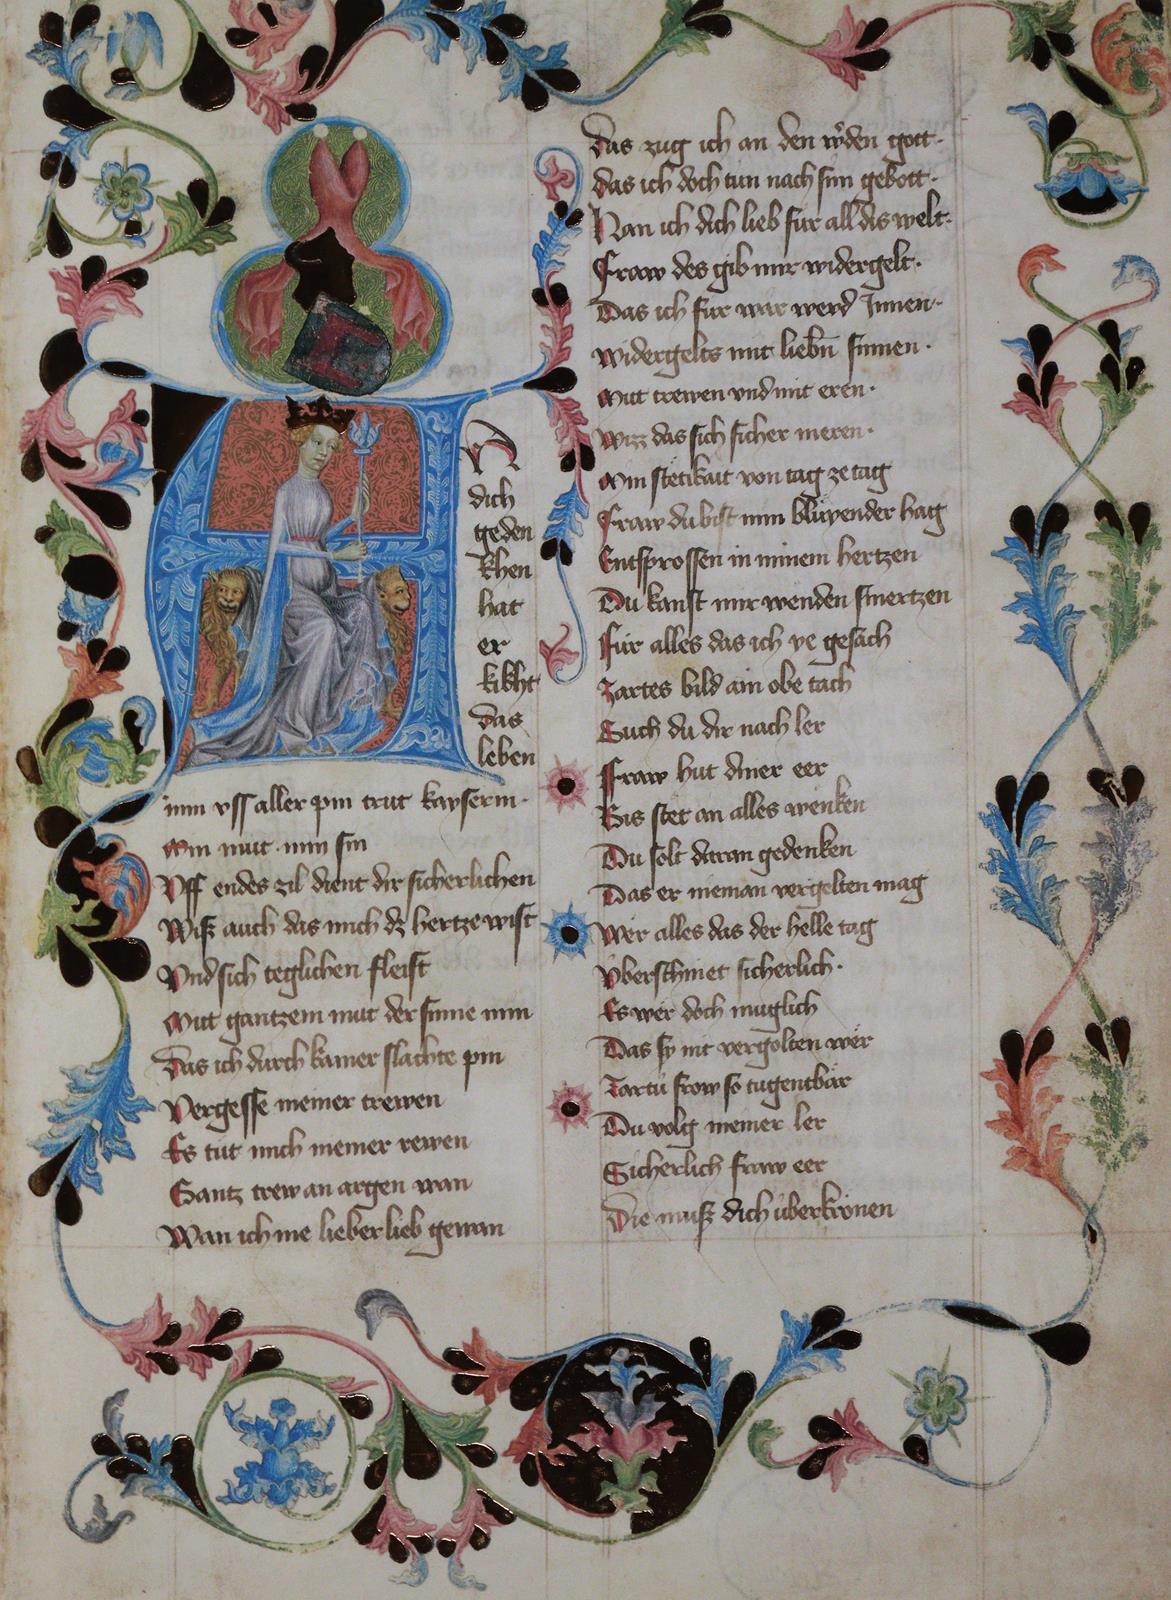 A
N
dich
geden
khen
hat
er
kikht
das
leben
min uss aller pin trut kayserin·
Min mut min sin
Uff endes zil dient dir sicherlichen
Wiß auch das mich dz hertze wist
Und sich teglichen fleist
Mit gantzem mut der sinne min
Das ich durch kainer slachte pin
Vergesse meiner trewen
Es tut mich meiner rewen
Gantz trew an argen wan
Wan ich nie lieber lieb gewan
Das zug ich an den werden gott·
das ich doch tun nach sim gebott·
Han ich dich lieb für all dis welt·
Fraw des gib mir widergelt·
Das ich für war werd Innen·
Widergelts mit liebn sinnen·
Mit trewen und mit eren·
Wizz das sich sicher meren·
Min stetikait von tag ze tag
Fraw du bist min blüyender hag
Entsprossen in minem hertzen
Du kanst mir wenden smertzen
Für alles das ich ye gesach
Zartes bild ain obe tach
Such du dir nach ler
Fraw hut diner eer
Bis stet an alles wenken
Du solt daran gedenken
Das er nieman vergelten mag
Wer alles das der helle tag
Uberschinet sicherlich·
Es wer doch muglich
Das sy nit vergolten wer
Zartü frow so tugentbär
Du volg meiner ler
Sicherlich fraw eer
Die muß dich überkrönen